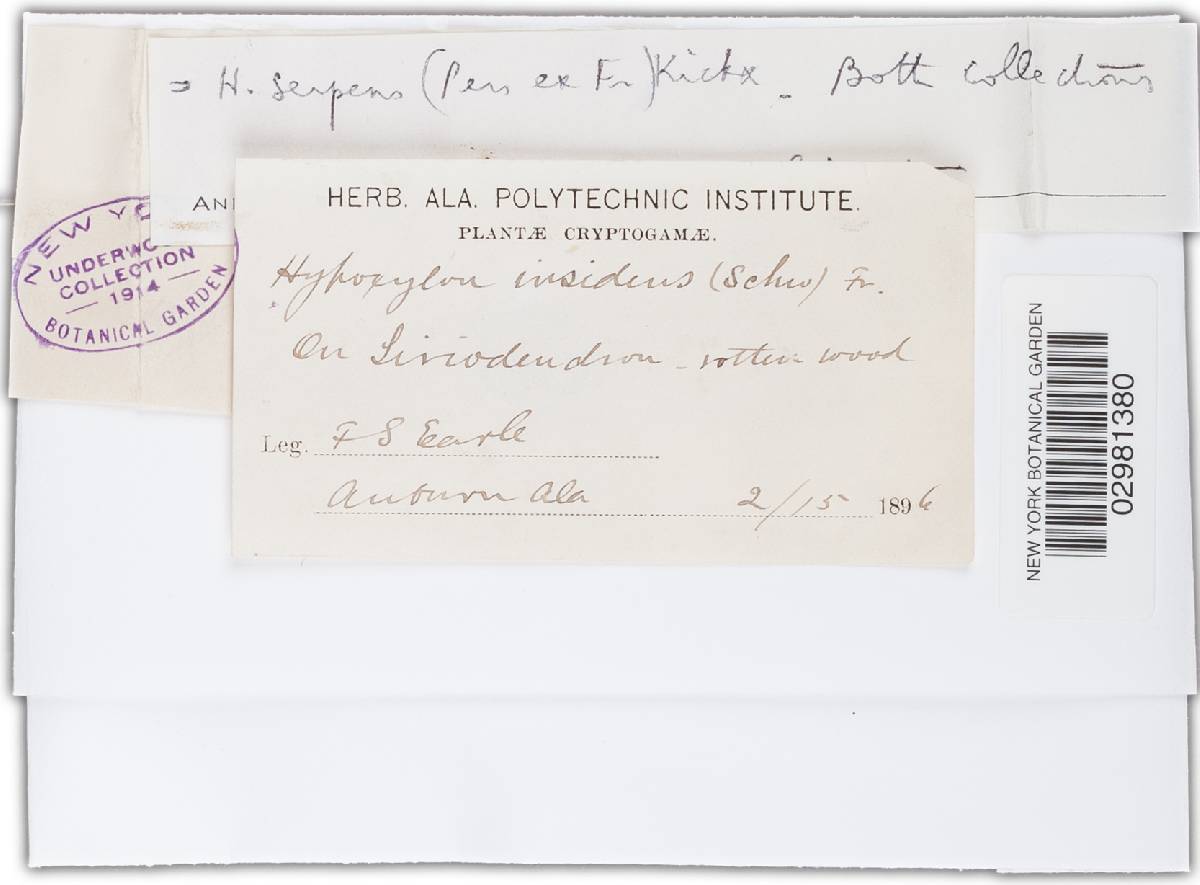 = H. serpens (Pers ex Fr) Kickx - Both collections
AN
NEW YO
UNDERWO
COLLECTION
1914
BOTANICAL GARDEN
HERB. ALA. POLYTECHNIC INSTITUTE.
PLANTÆ CRYPTOGAMÆ.
Hypoxylon insidens (Schw) Fr.
On Liriodendron - rotten wood
Leg. F S Earle
Auburn Ala 2/15 1896
NEW YORK BOTANICAL GARDEN
02981380